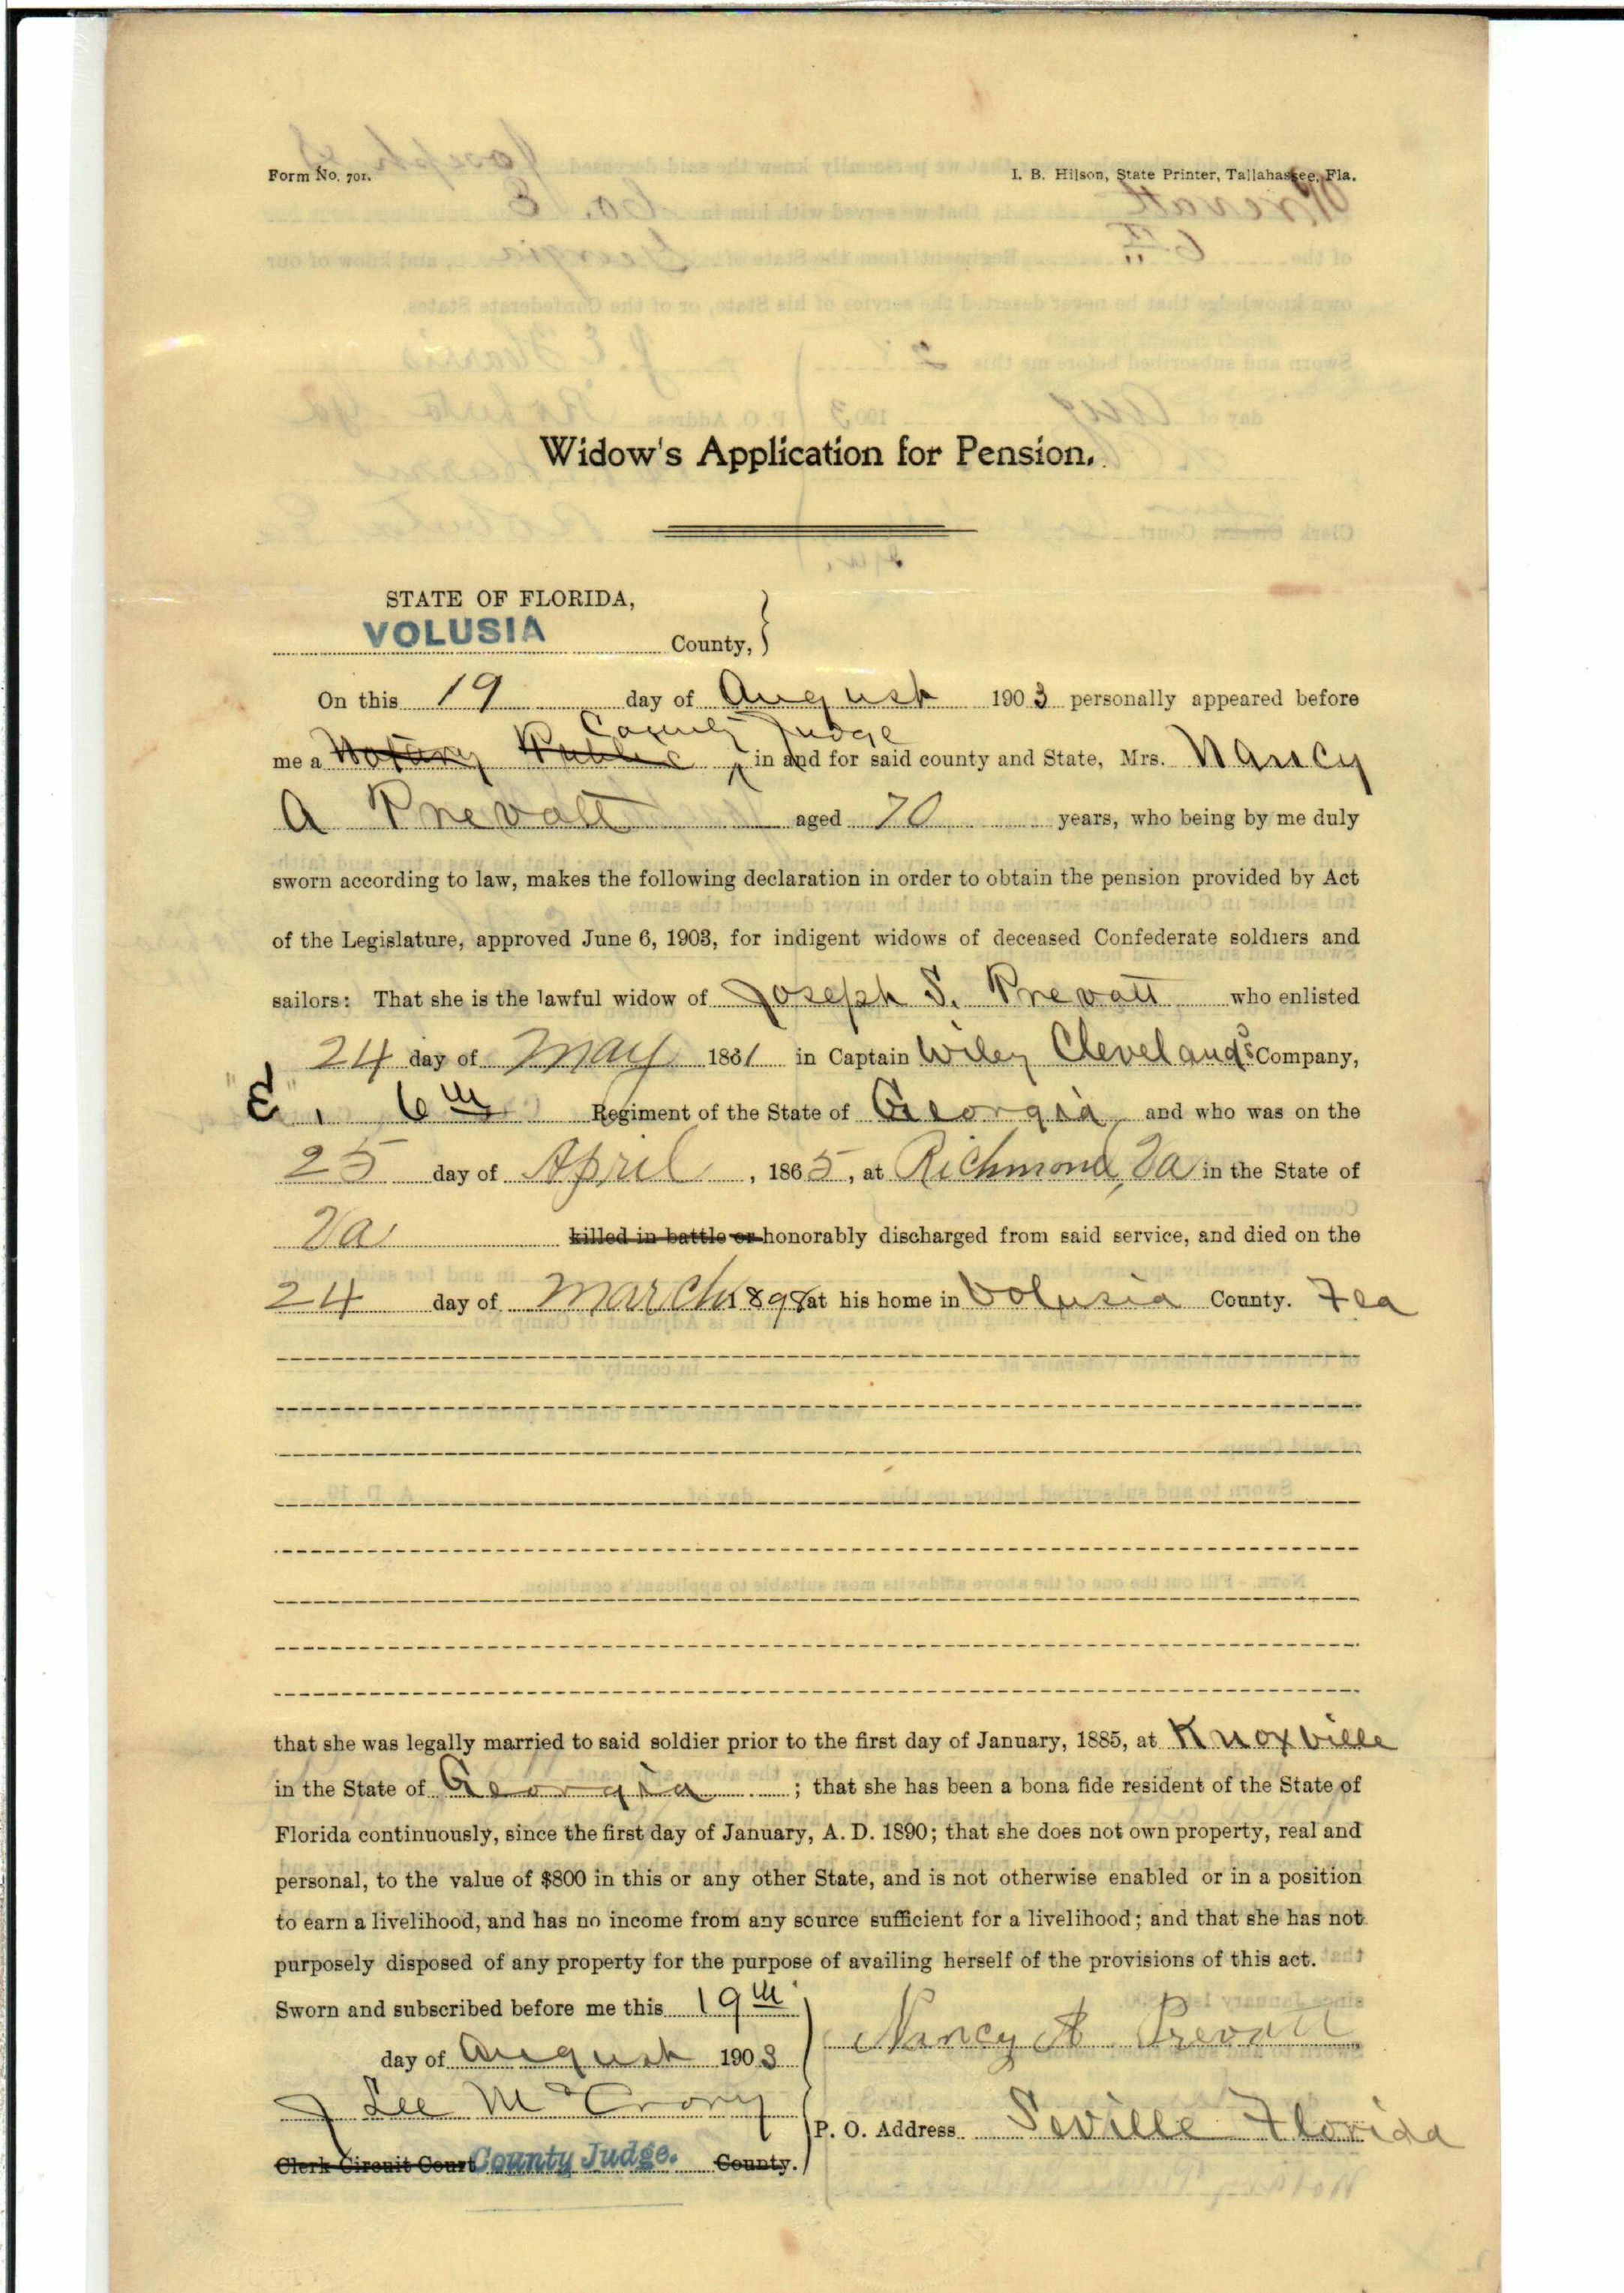 Form No. 701.
I. B. Hilson, State Printer, Tallahassee, Fla.
Widow's Application for Pension.
STATE OF FLORIDA,
VOLUSIA County,
On this 19 day of August 1903 personally appeared before
County Judge
me a Notary Public in and for said county and State, Mrs. Nancy
A Prevatt aged 70 years, who being by me duly
sworn according to law, makes the following declaration in order to obtain the pension provided by Act
of the Legislature, approved June 6, 1903, for indigent widows of deceased Confederate soldiers and
sailors: That she is the lawful widow of Joseph S. Prevatt who enlisted
24 day of May 1861 in Captain Wiley Cleveland's Company,
"E", 6th Regiment of the State of Georgia and who was on the
25 day of April, 1865, at Richmond, Va in the State of
Va killed in battle or honorably discharged from said service, and died on the
24 day of March 1898 at his home in Volusia County. Fla
that she was legally married to said soldier prior to the first day of January, 1885, at Knoxville
in the State of Georgia; that she has been a bona fide resident of the State of
Florida continuously, since the first day of January, A. D. 1890; that she does not own property, real and
personal, to the value of $800 in this or any other State, and is not otherwise enabled or in a position
to earn a livelihood, and has no income from any source sufficient for a livelihood; and that she has not
purposely disposed of any property for the purpose of availing herself of the provisions of this act.
Sworn and subscribed before me this 19th
day of August 1903
Nancy A Prevatt
J Lee McCrory
P. O. Address Seville Florida
Clerk Circuit Court County Judge. County.